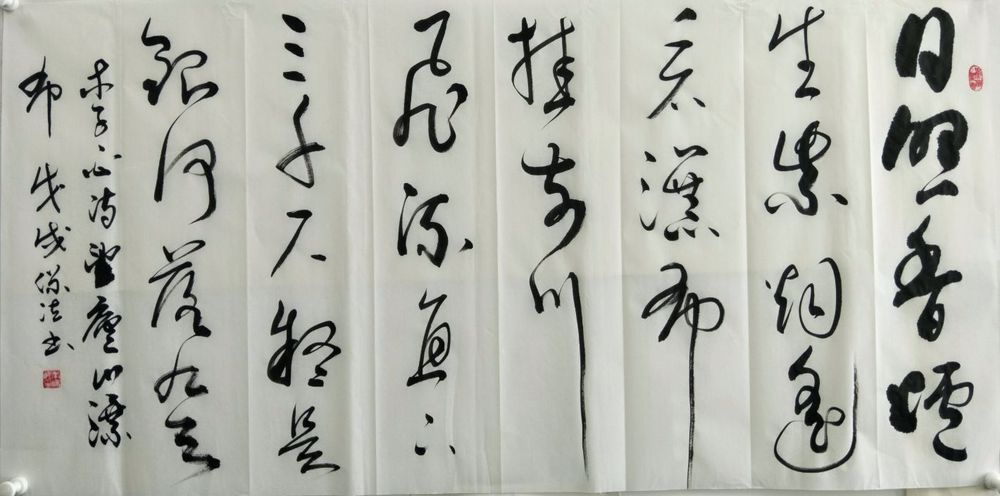 日照香爐
生紫烟遥
看瀑布
挂前川
飛流直下
三千尺疑是
銀河落九天
李白诗望廬山瀑
布 戊戌书